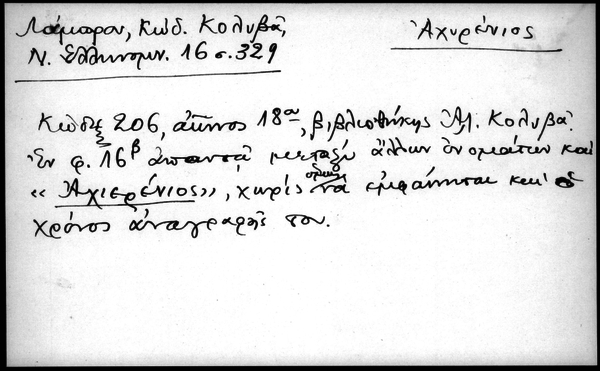 Λάμπρου, Κώδ. Κολυβᾶ,
Ἀχυρένιος
Ν. Ἑλληνομν. 16 σ. 329
Κῶδιξ 206, αἰῶνος 18ου, βιβλιοθήκης Ἀλ. Κολυβᾶ.
Ἐν φ. 16β ἀπαντᾶ μεταξύ ἄλλων ὀνομάτων καί
«Ἀχιερένιος», χωρίς ὅμως νά ἐμφαίνηται καί ὁ
χρόνος ἀναγραφῆς του.